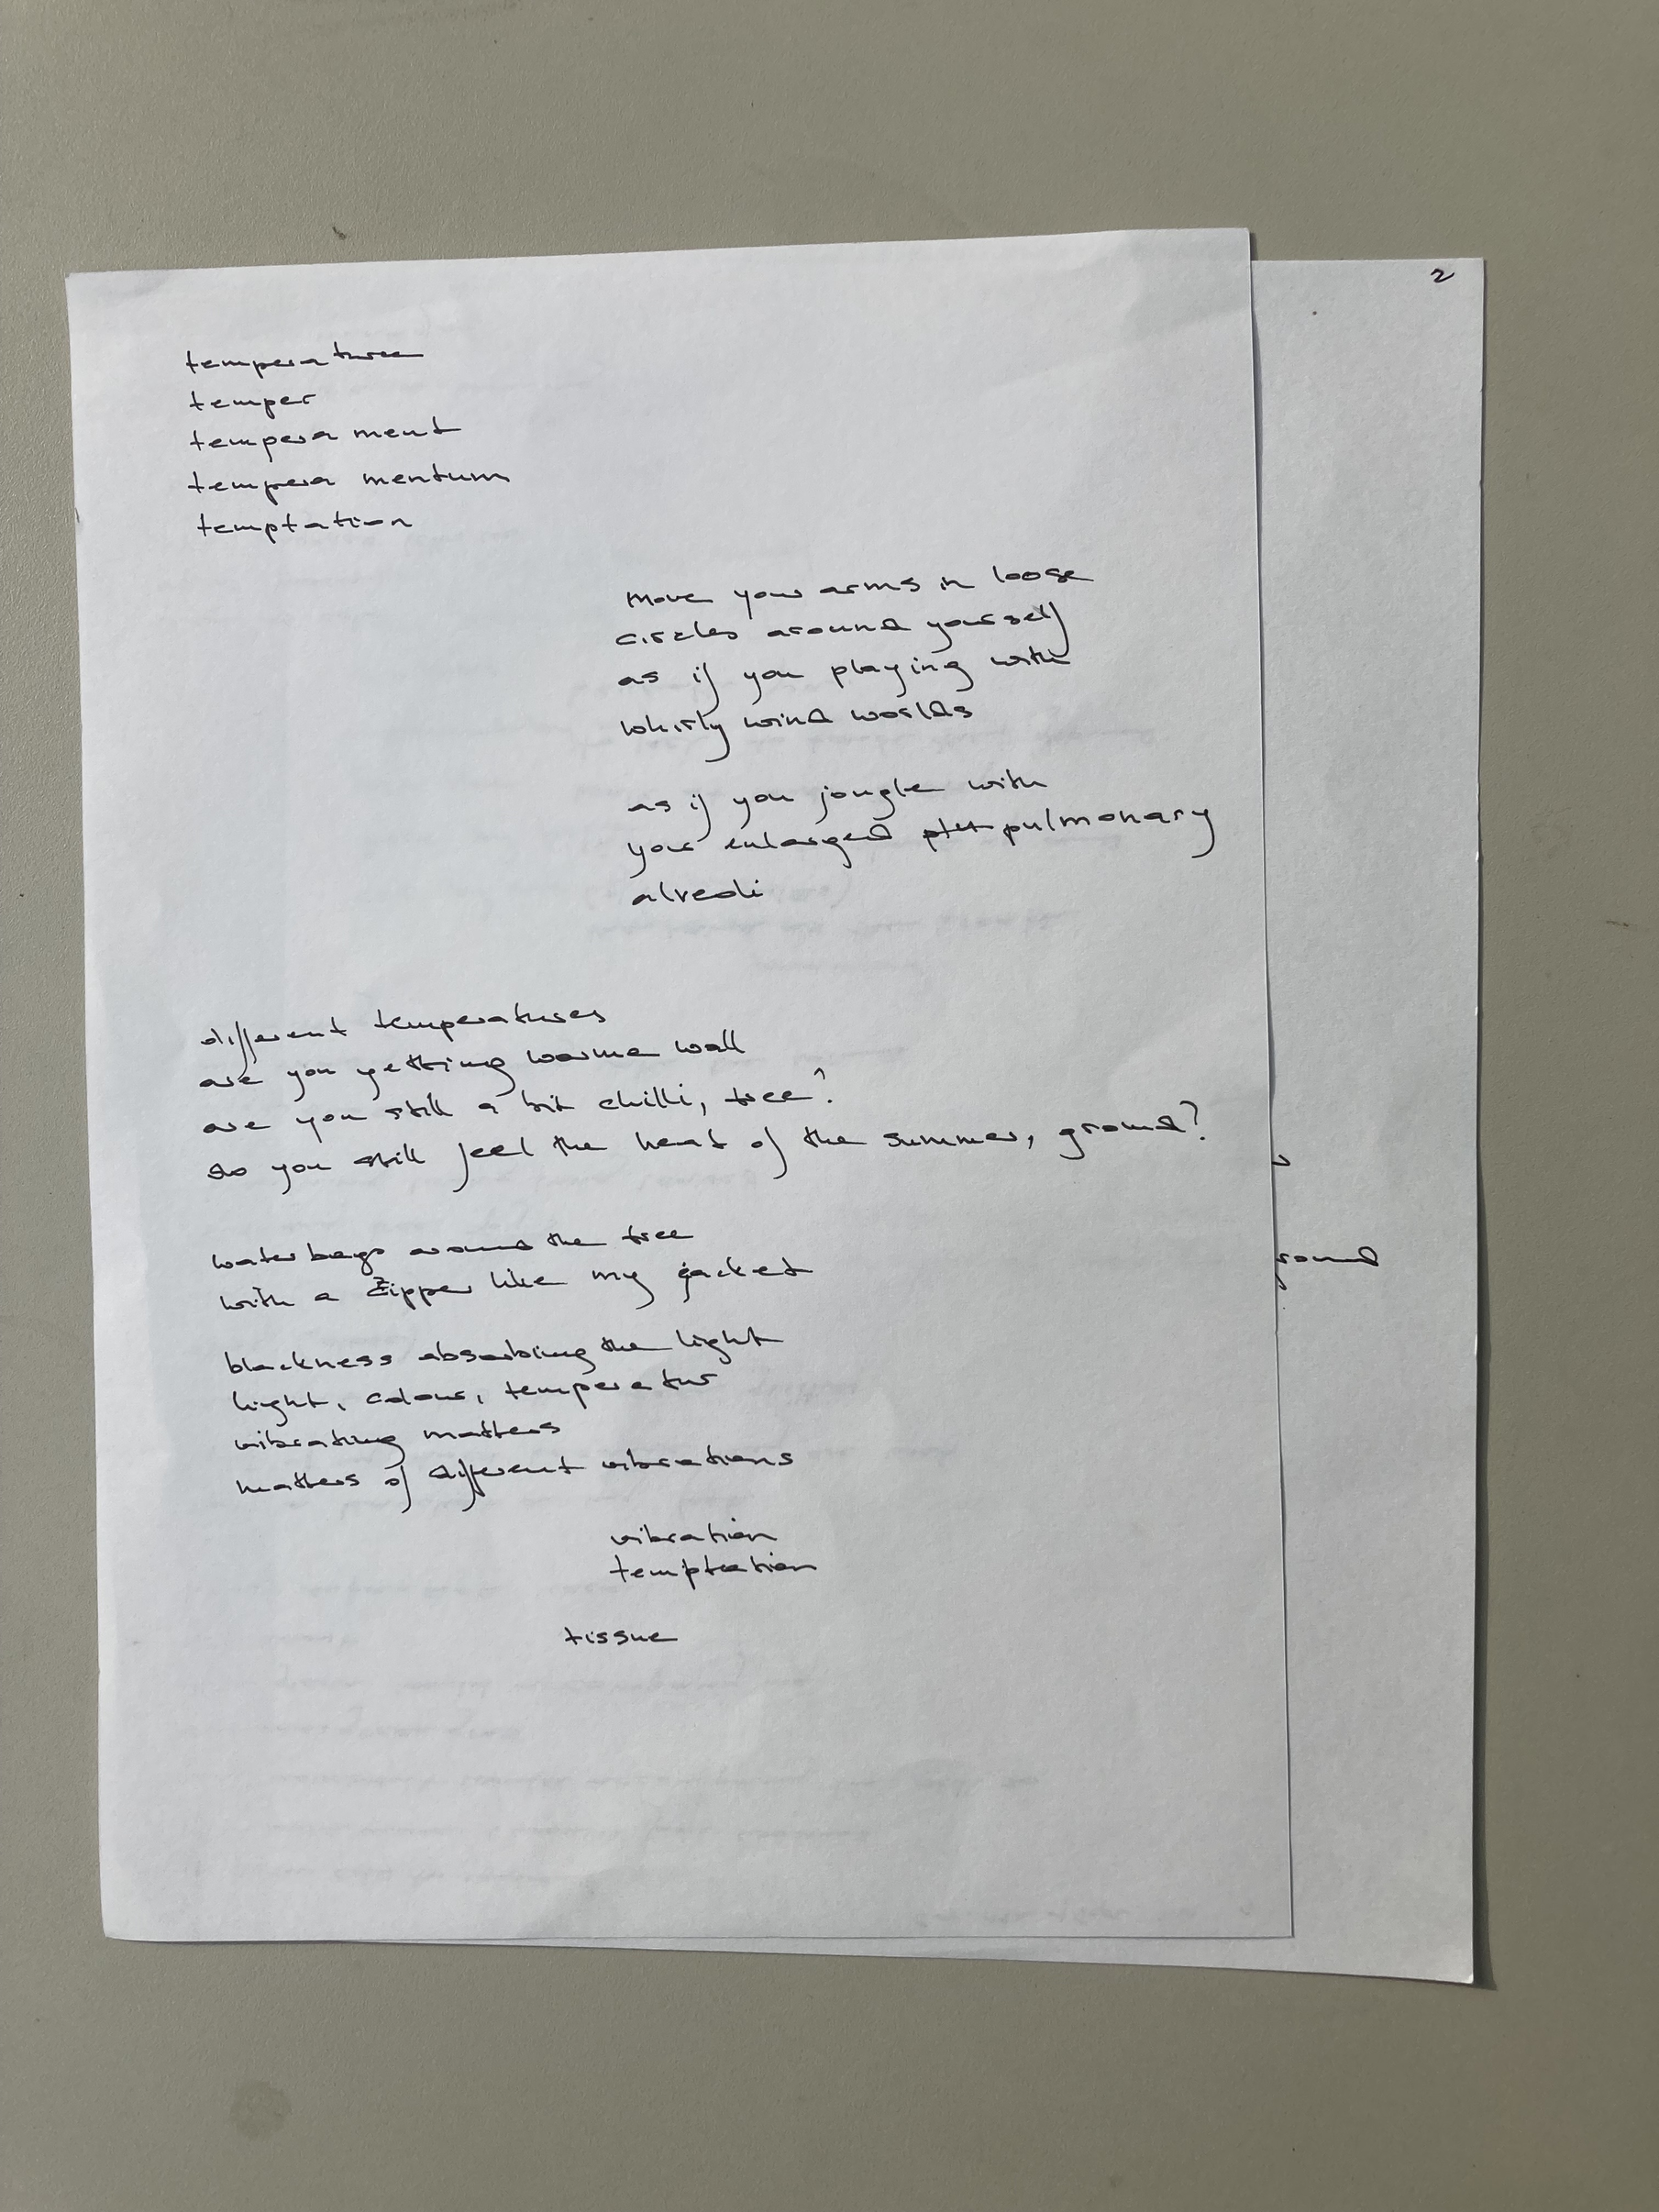 2
temperature
temper
tempera ment
tempera mentum
temptation
move your arms in loose
circles around yourself
as if you playing with
whirly wind worlds
as if you jongle with
your enlarged pulmonary
alveoli
different temperatures
are you getting warme wall
are you still a bit chilli, tree?
do you still feel the heat of the summer, ground?
water bags around the tree
with a zipper like my jacket
blackness absorbing the light
light, colour, temperatur
vibrating matters
matters of different vibrations
vibration
temptation
tissue
round